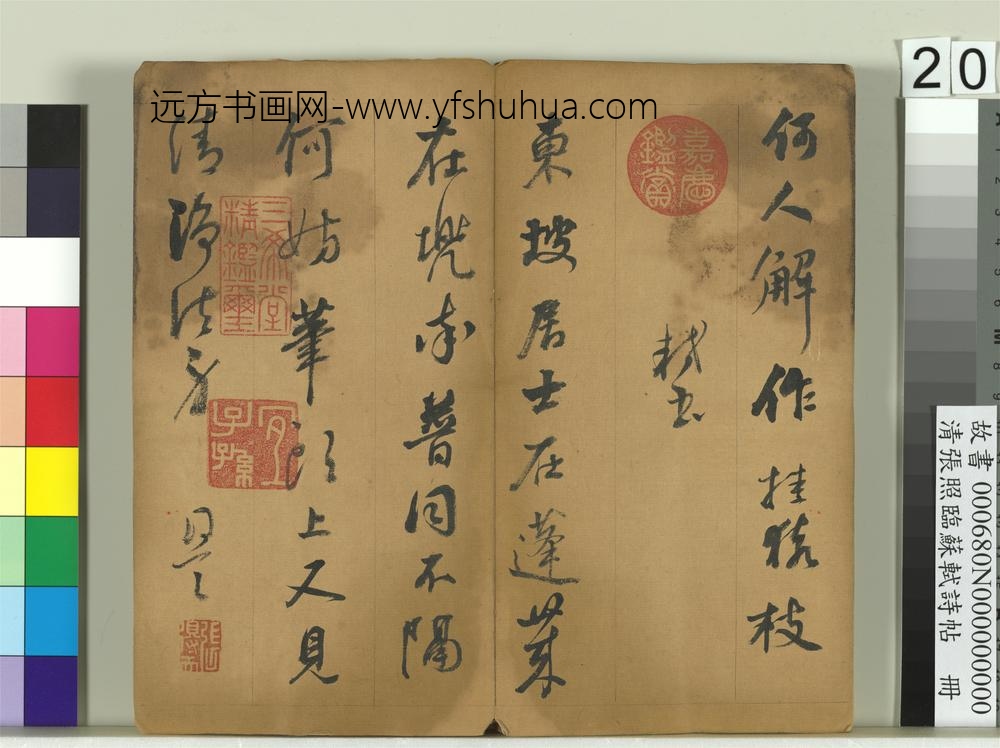 远方书画网-www.yfshuhua.com
20
何人解作挂猿枝
軾書
嘉慶鑑賞
東坡居士在蓬萊
在世赤普同不隔
何妨筆頭上又見
清淨法身
三希堂精鑑璽
宜子孫
故書 000680N000000000
清張照臨蘇軾詩帖 冊